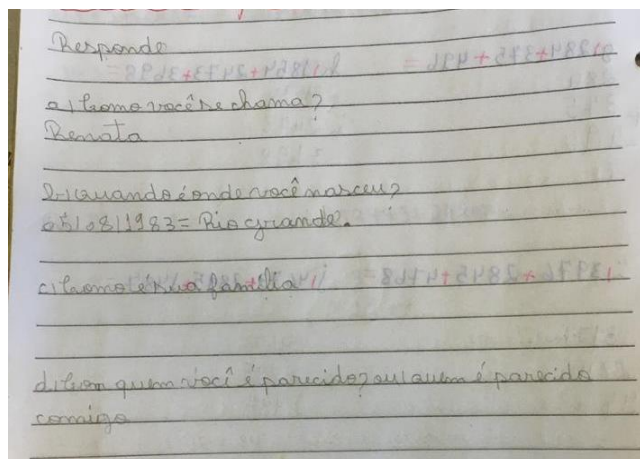 Responde
a) Como você se chama?
Renata
b) quando é onde você nasceu?
05/08/1983 = Rio grande.
c) Como é sua família
d) Com quem você é parecido? ou quem é parecido
comigo